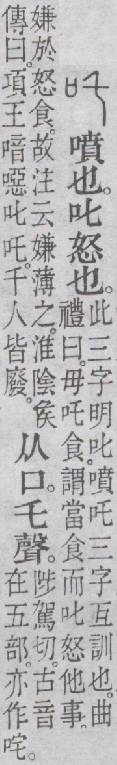 吒
噴也。叱怒也。
此三字明叱噴吒三字互訓也。曲
禮曰。毋吒食。謂當食而叱怒他事。
嫌於怒食。故注云嫌薄之。淮陰矦
傳曰。項王喑噁叱吒。千人皆廢。
从口。乇聲。
陟駕切。古音
在五部。亦作咤。